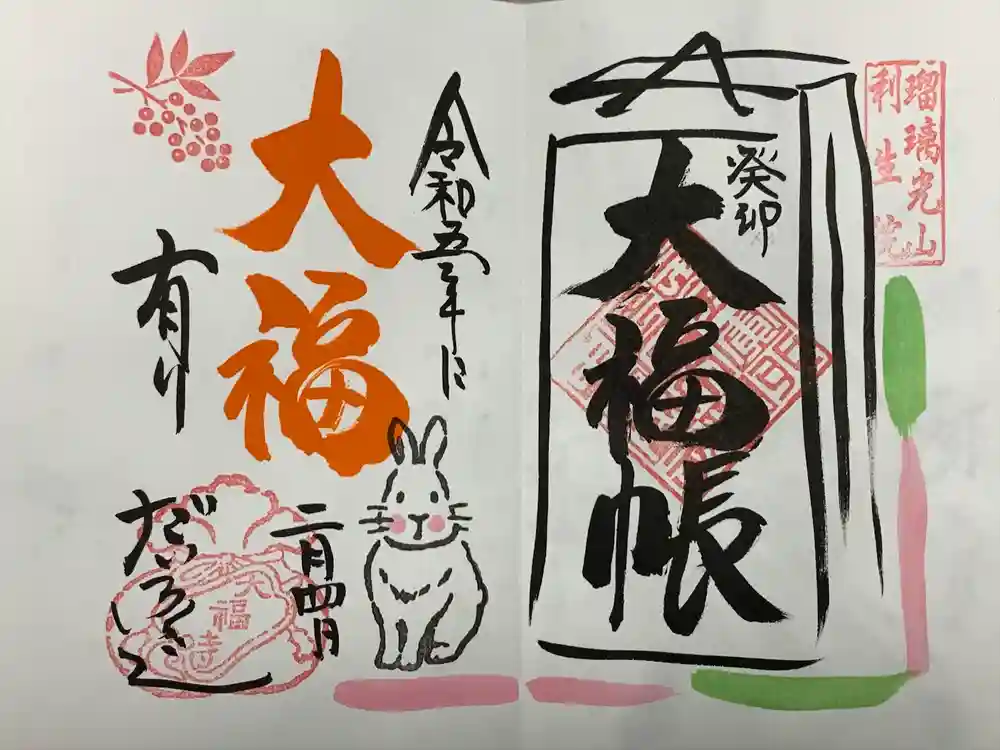 瑠璃光山
利生院
癸卯
大福帳
令和五年に
大福
有り
二月四日
だいふくじ
大福寺